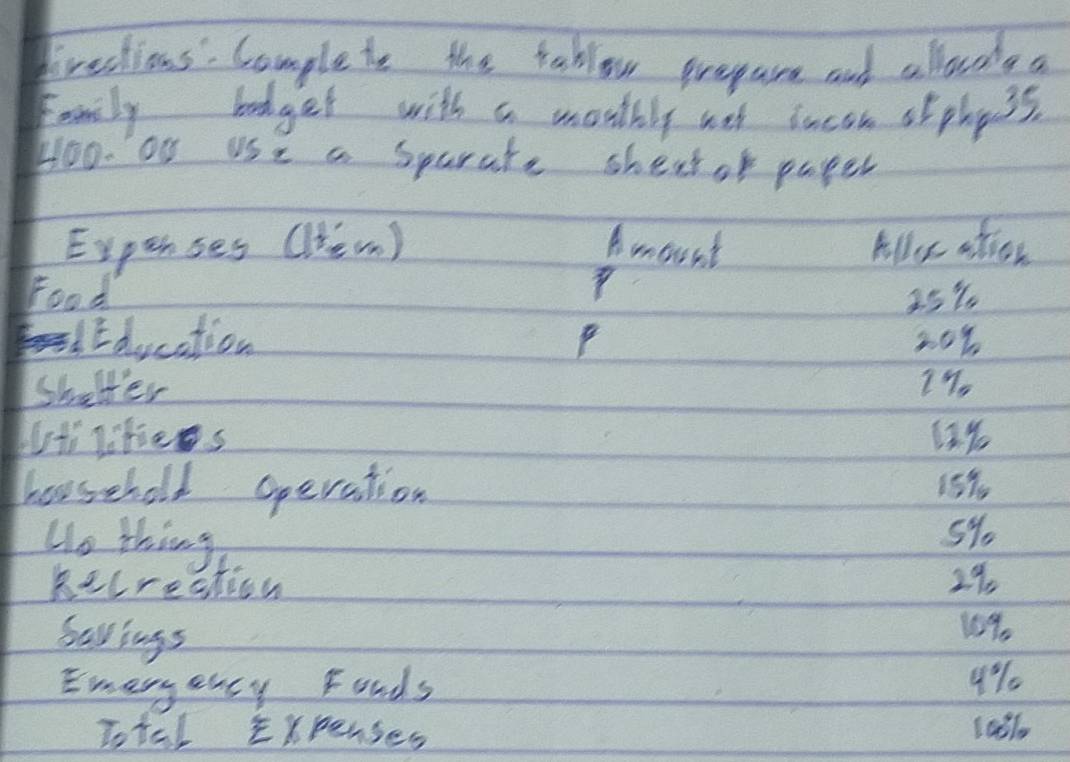 directions: Complete the tablow prepare and allocate a
Family budget with a monthly net incom of php 35.
400.00 use a Sparate sheet of paper
Expenses (Item) Amount Allocation
Food P 25%
Education P 20%
Shelter 7%
Utilities 12%
household operation 15%
Clothing 5%
Recreation 2%
Savings 10%
Emergency Founds 4%
Total Expenses 100%